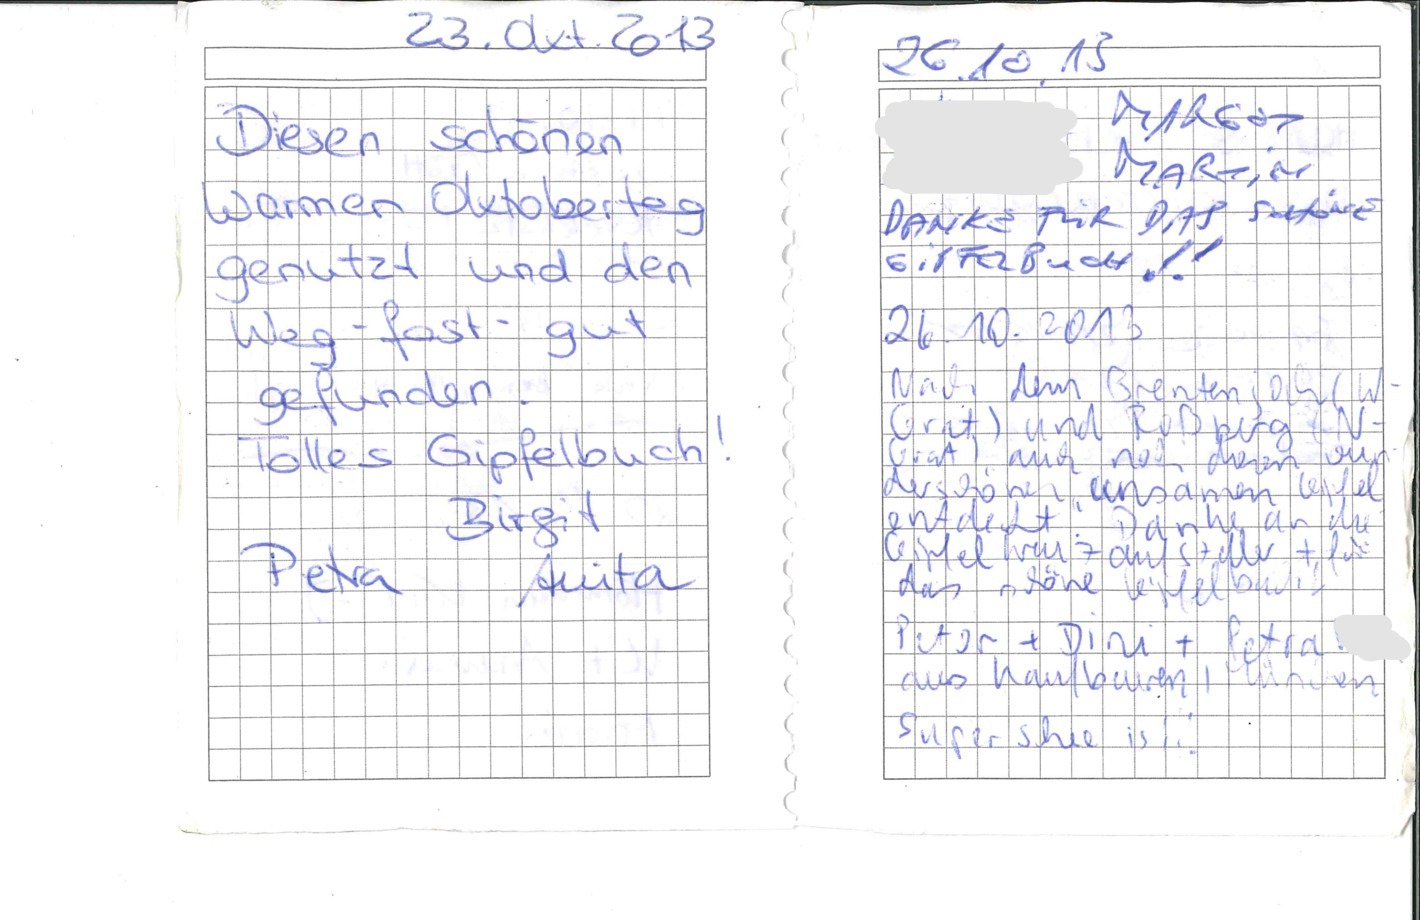 23. Okt. 2013
Diesen schönen
warmen Oktobertag
genutzt und den
Weg - fast - gut
gefunden.
Tolles Gipfelbuch!
Birgit
Petra Anita
26.10.13
MARGOT
MARTiN
DANKE FÜR DAS SCHÖNE
GiPFELBucH!!
26.10.2013
Nach dem Brentenjoch (W-
Grat) und Roßberg (N-
Grat) auch noch diesen wun-
derschönen, einsamen Gipfel
entdeckt. Danke an die
Gipfelkreuz-aufsteller + für
das schöne Gipfelbuch
Peter + Dini + Petra
aus Kaufbeuren,
Super schee is